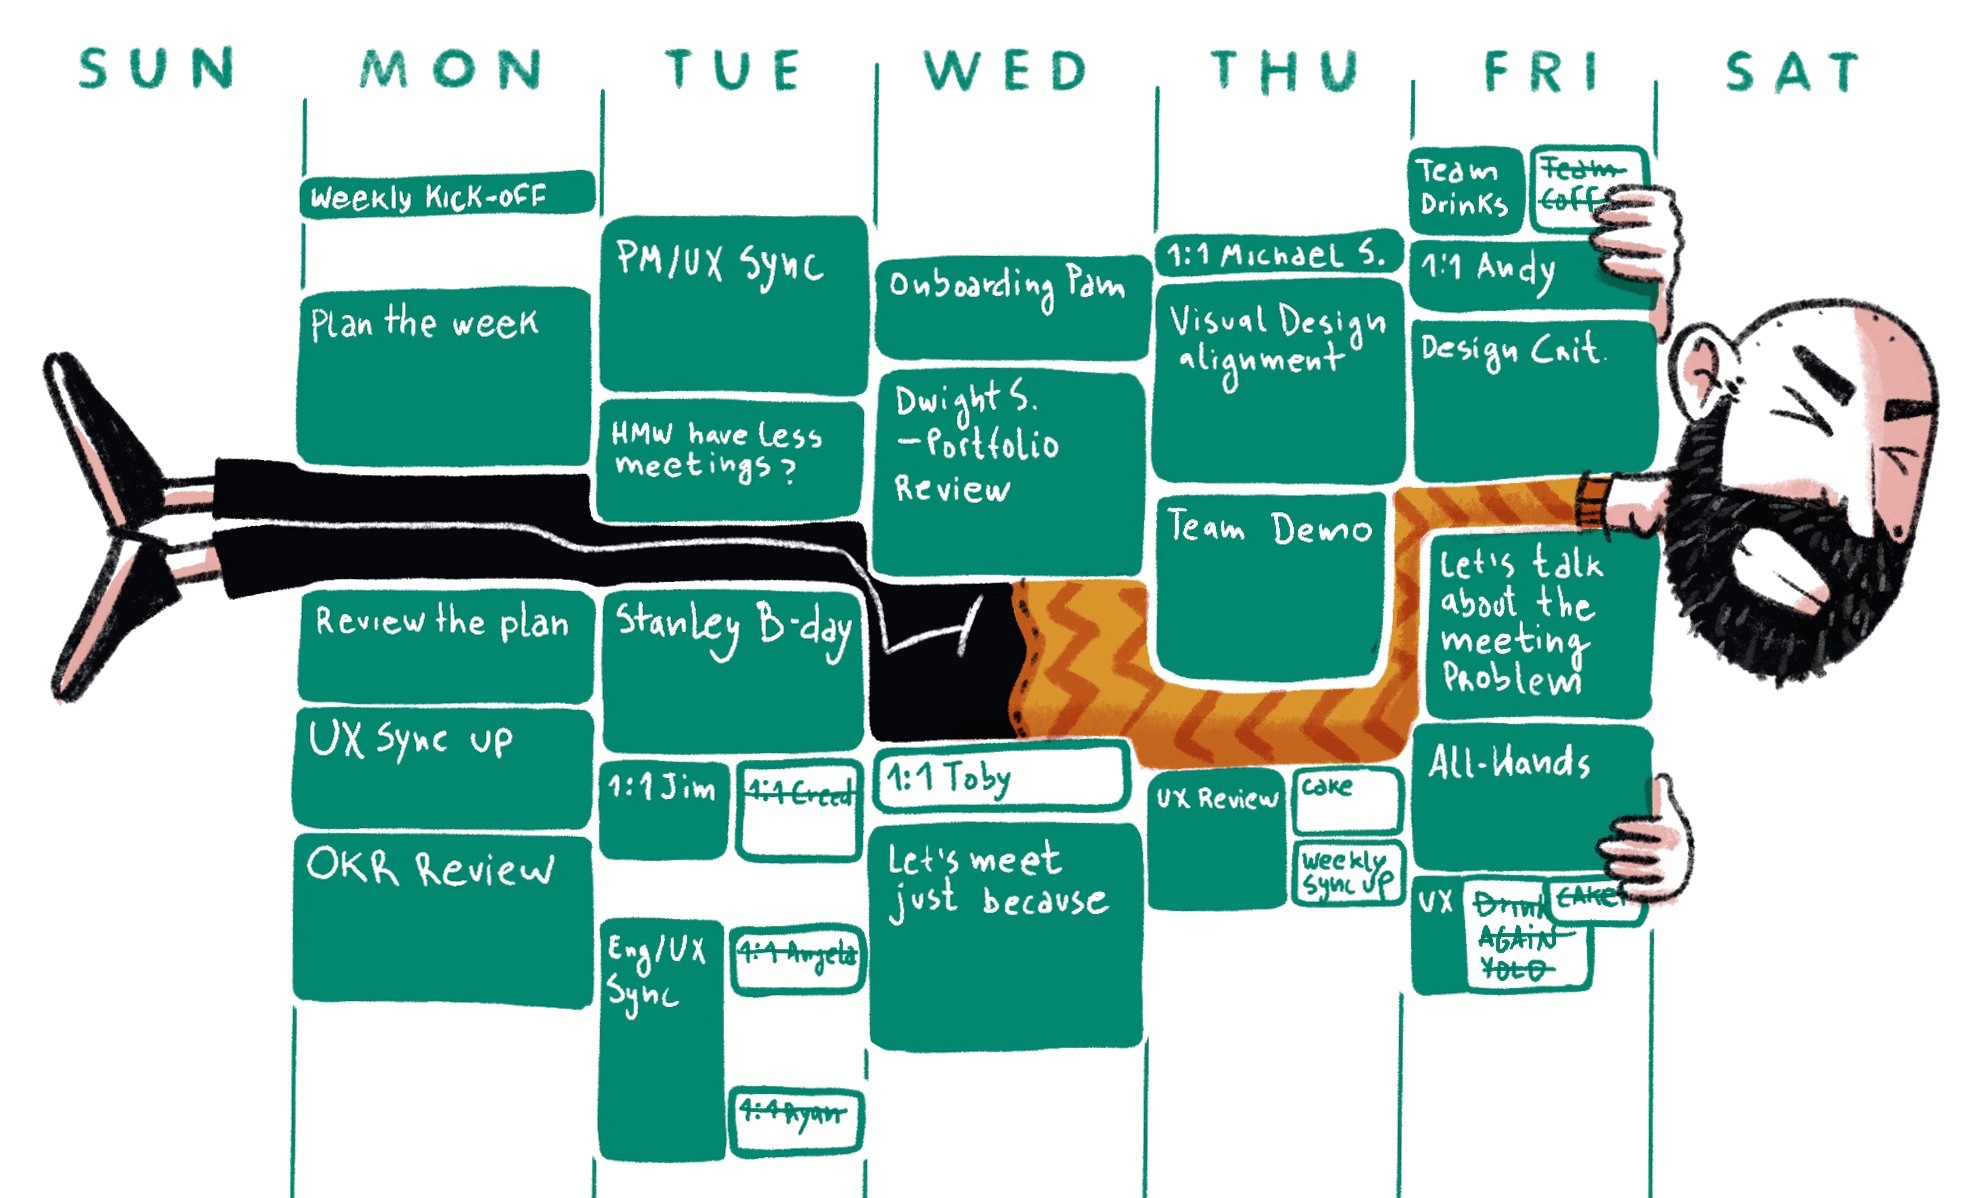 SUN MON TUE WED THU FRI SAT
Weekly Kick-off
Plan the week
Review the plan
UX Sync up
OKR Review
PM/UX Sync
HMW have less
meetings?
Stanley B-day
1:1 Jim
1:1 Creed
Eng/UX
Sync
1:1 Angela
1:1 Ryan
Onboarding Pam
Dwight S.
–Portfolio
Review
1:1 Toby
Let's meet
just because
1:1 Michael S.
Visual Design
alignment
Team Demo
UX Review
Cake
Weekly
Sync up
Team
Drinks
Team
Coff
1:1 Andy
Design Crit.
Let's talk
about the
meeting
Problem
All-Hands
UX
Drink
AGAIN
YOLO
CAKE